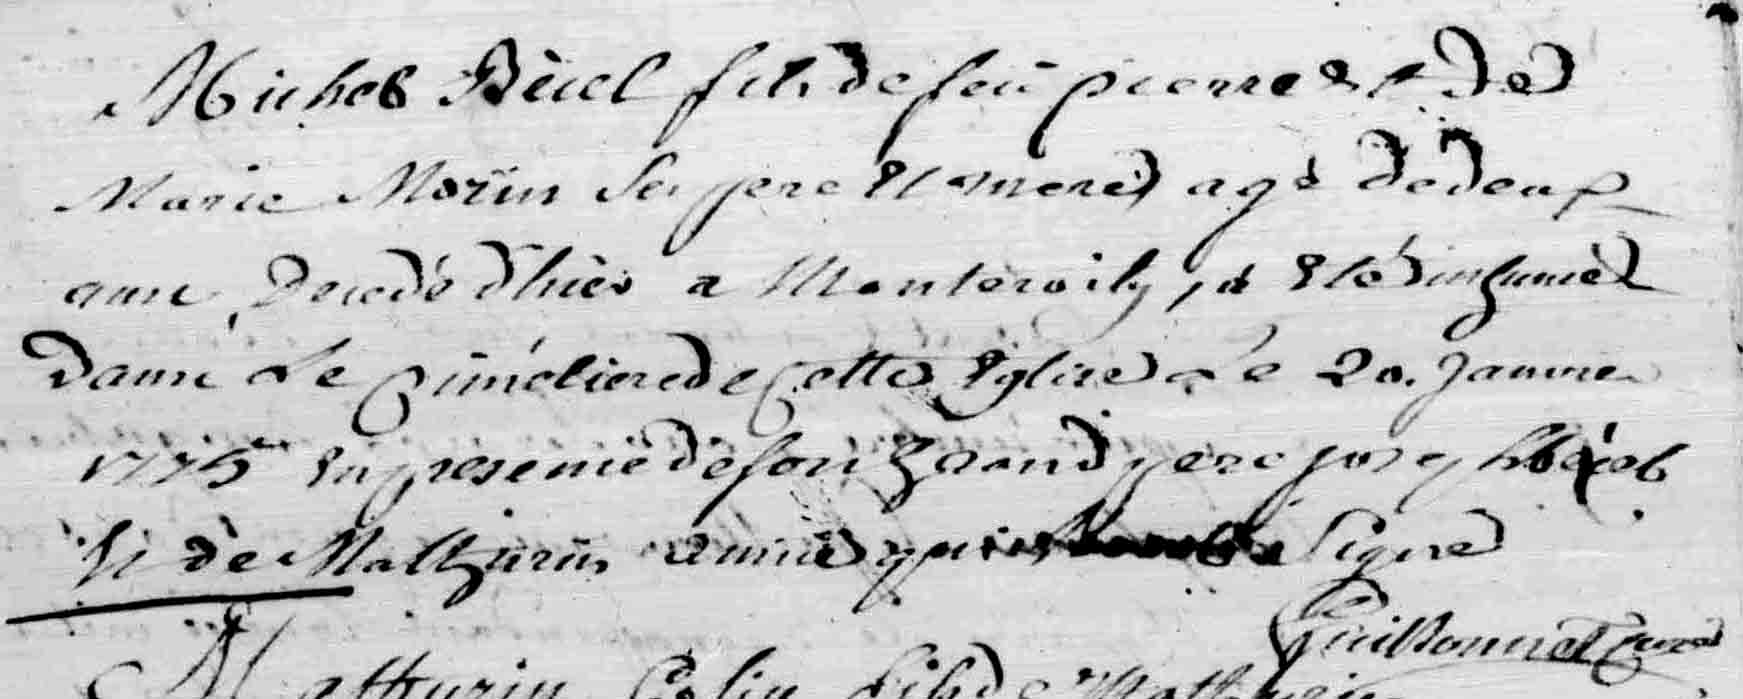 Michel Bëüel fils de feü pierre et de
Marie Morïn Ses pere et mere agé de deux
ans, Decedé d'hier a Monteroily, a eté inhumé
dans Le Cimetiere de Cette Eglise Le 20. Janvier
1775 en presence de son grand pere joseph
et de Mathurin qui Signé
Guillonnet Curé
Mathurin Colin fils de Mathurin